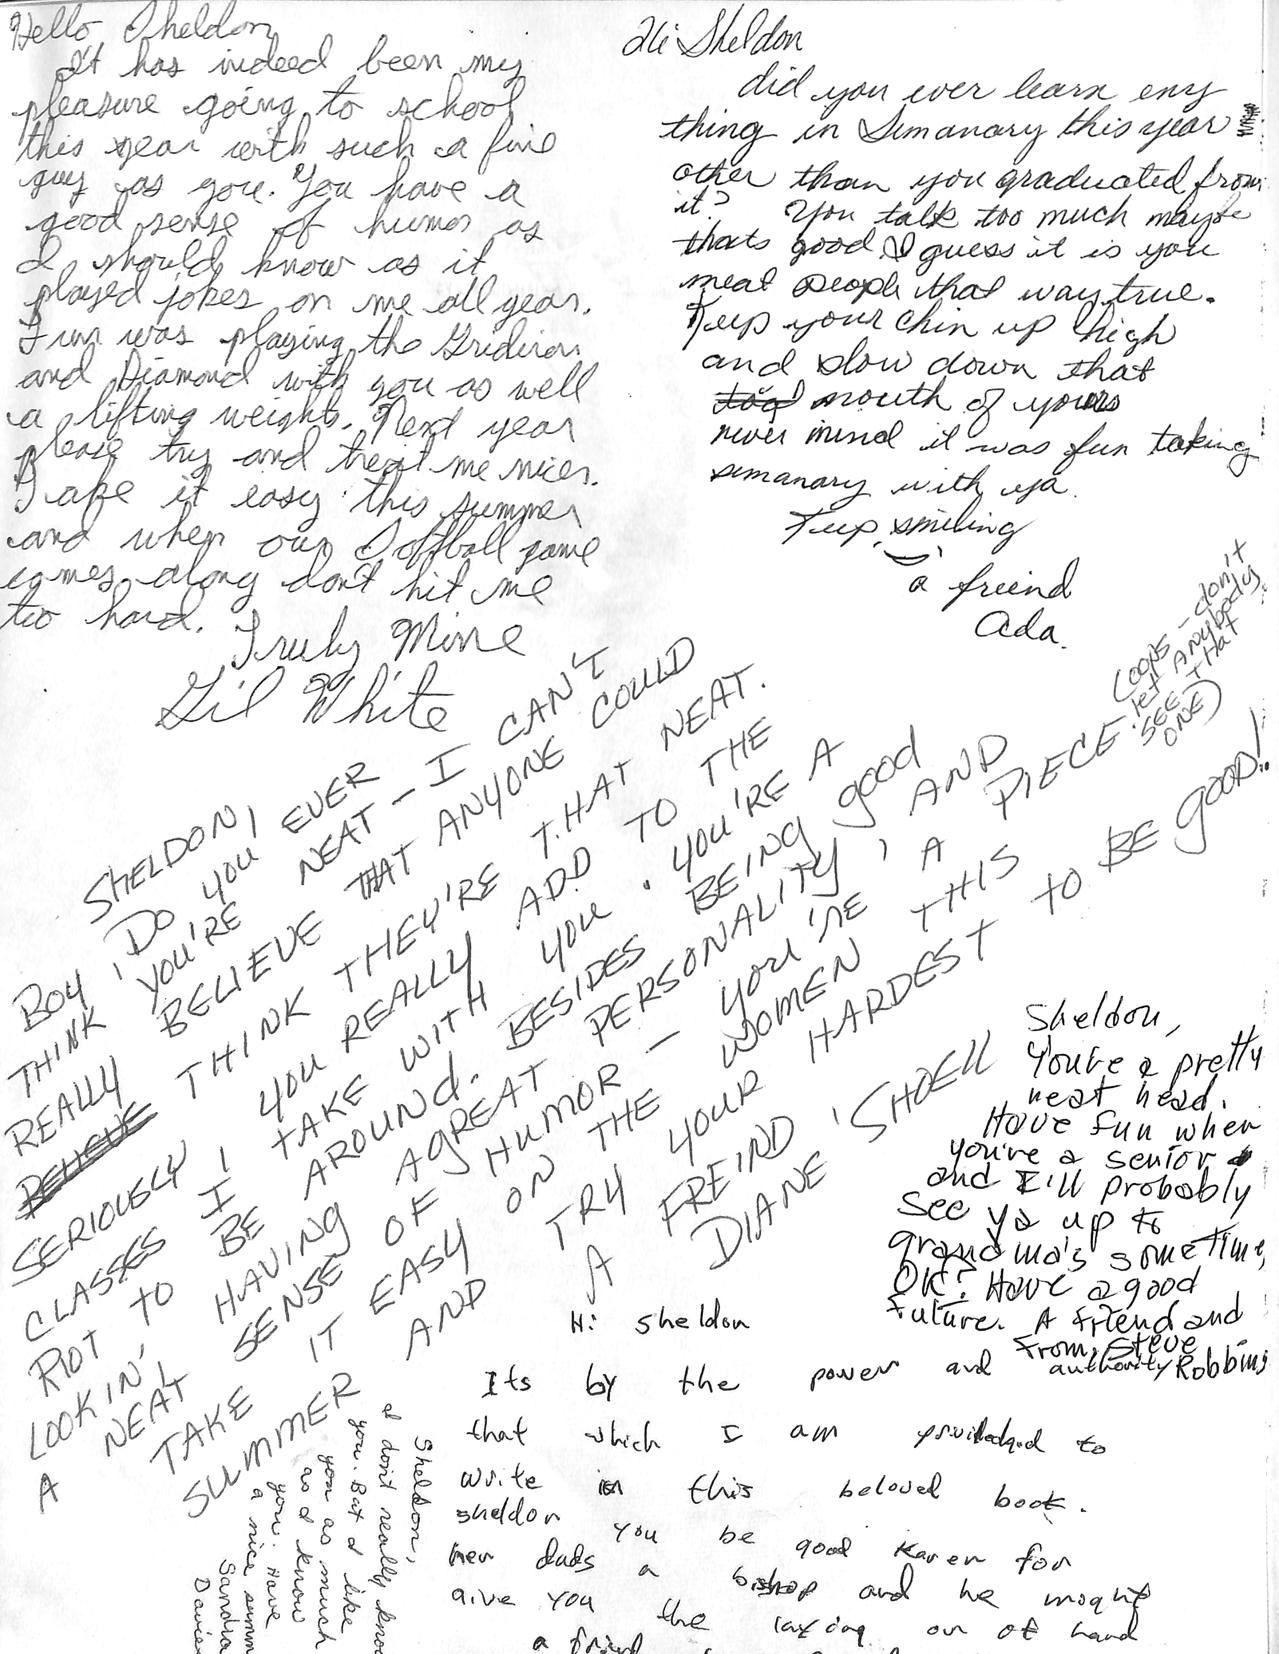 Hello Sheldon
It has indeed been my
pleasure going to school
this year with such a fine
guy as you. You have a
good sense of humor as
I should know as it
played jokes on me all year.
Fun was playing the Gridiron
and Diamond with you as well
a lifting weights. Next year
please try and treat me nicer.
Take it easy this summer
and when our Softball game
comes along don't hit me
too hard.
Truly Mine
Gil White
Hi Sheldon
did you ever learn eny
thing in Simanary this year
other than you graduated from
it? You talk too much maybe
thats good I guess it is you
meat people that way true.
Keep your chin up high
and slow down that
mouth of yours
never mind it was fun taking
simanary with ya.
Keep smiling
a friend
Ada.
SHELDON,
BOY, DO YOU EVER
THINK YOU'RE NEAT - I CAN'T
REALLY BELIEVE THAT ANYONE COULD
BELIEVE THINK THEY'RE THAT NEAT.
SERIOUSLY YOU REALLY ADD TO THE
CLASSES I TAKE WITH YOU. YOU'RE A
RIOT TO BE AROUND. BESIDES BEING good
LOOKIN', HAVING A GREAT PERSONALITY, AND
A NEAT SENSE OF HUMOR - YOU'RE A PIECE.
(OOPS - don't
let ANYbody
SEE THAT
ONE)
TAKE IT EASY ON THE WOMEN THIS
SUMMER AND TRY YOUR HARDEST TO BE GOOD!
A FREIND
DIANE SHOELL
Sheldon,
You're a pretty
neat head.
Have fun when
you're a senior
and I'll probably
see ya up to
grandma's sometime,
OK? Have a good
future. A friend and
from, Steve
Robbins
Hi Sheldon
Its by the power and authority
that which I am priviledged to
write in this beloved book.
Sheldon you be good Karen for
her dads a bishop and he might
give you the laying on of hand
a friend
Sheldon,
I don't really know
you. But I like
you as much
as I know
you. Have
a nice summ
Sandra
Davies